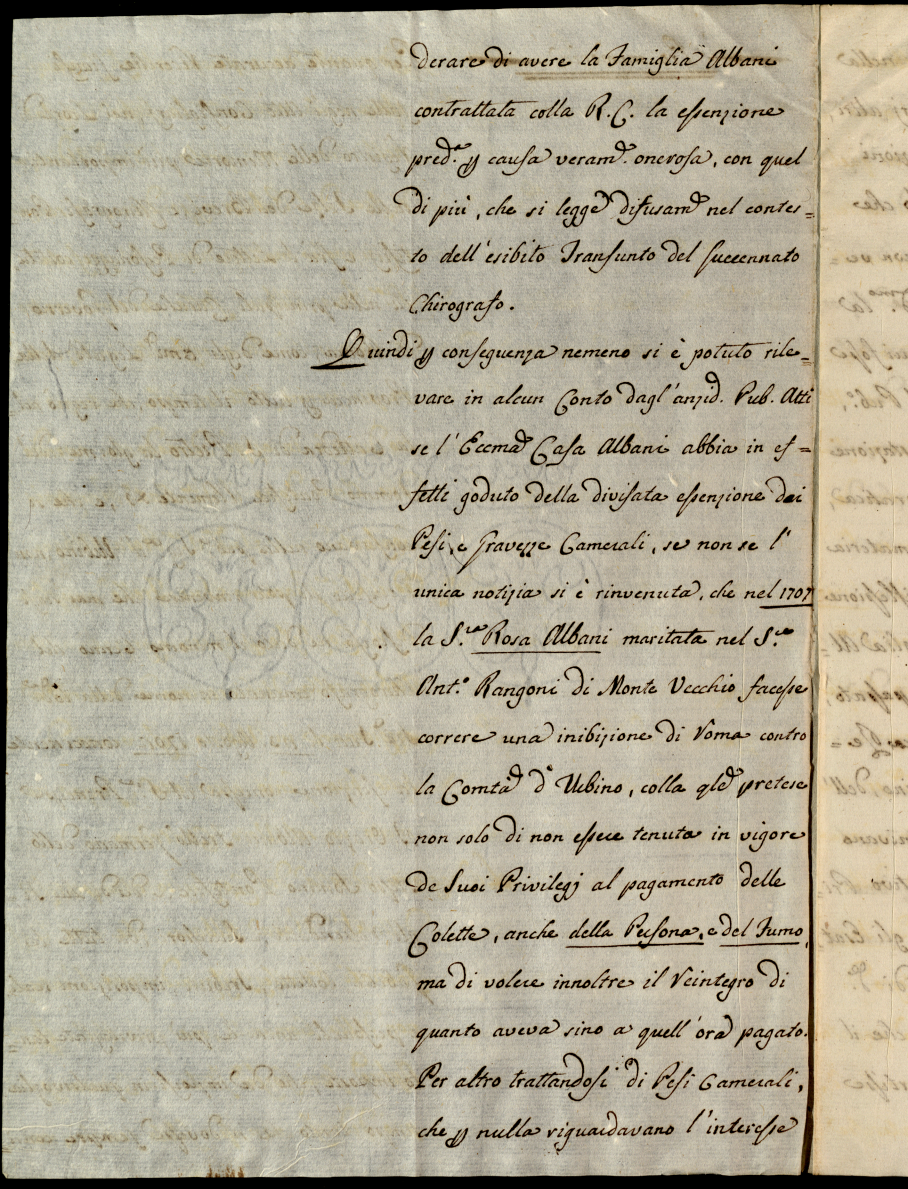 derare di avere la Famiglia Albani
contrattata colla R. C. la essenzione
pred.ª p causa veram.e onerosa, con quel
di più, che si legge difusam.e nel contes=
to dell'esibito Transunto del succennato
Chirografo.
Quindi p conseguenza nemeno si è potuto rile=
vare in alcun Conto dagl'anzid. Pub. Atti
se l'Eccma Casa Albani abbia in ef=
fetti goduto della divisata essenzione dei
Pesi, e Gravezze Camerali, se non se l'
unica notizia si è rinvenuta, che nel 1707
la S.ra Rosa Albani maritata nel S.re
Ant.o Rangoni di Monte Vecchio facesse
correre una inibizione di Roma contro
la Comtà d'Urbino, colla qle pretese
non solo di non essere tenuta in vigore
de Suoi Privilegj al pagamento delle
Colette, anche della Persona, e del Fumo,
ma di volere innoltre il Reintegro di
quanto aveva sino a quell'ora pagato.
Per altro trattandosi di Pesi Camerali,
che p nulla riguardavano l'interesse